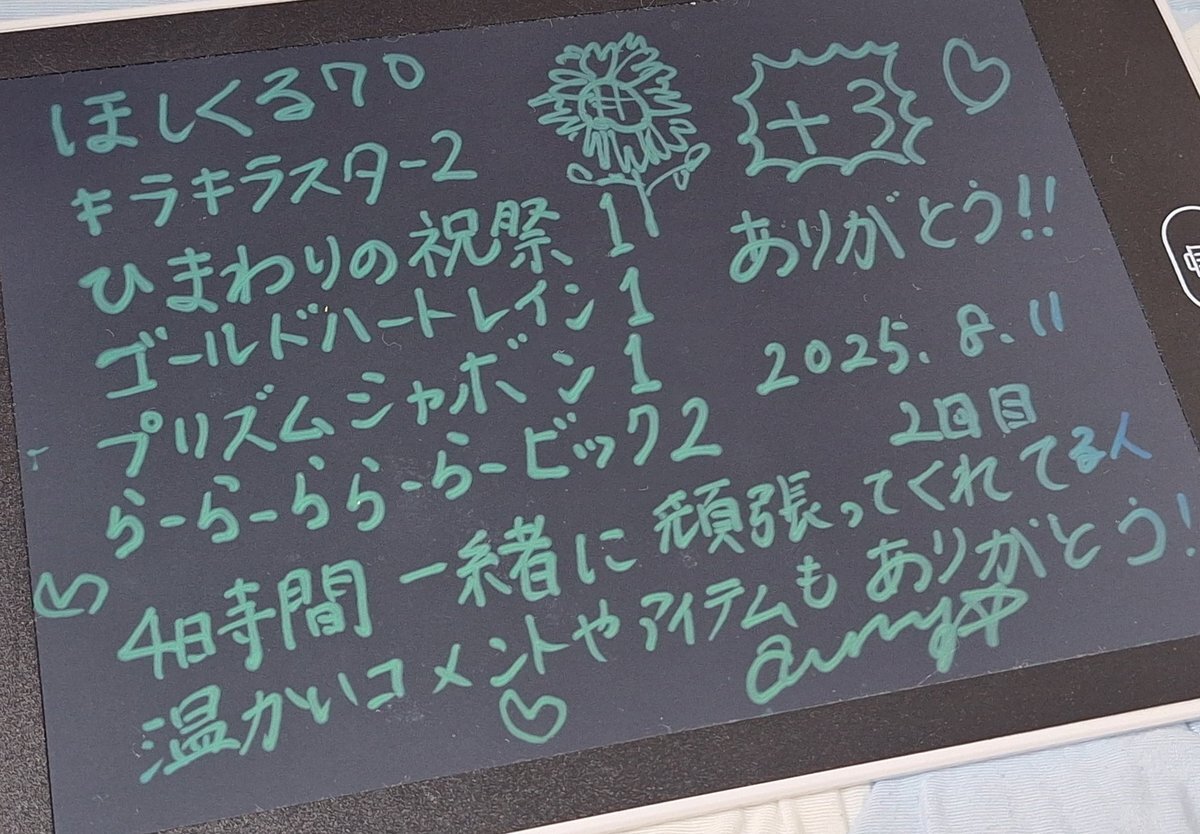 ほしくる70
キラキラスター2
ひまわりの祝祭 1
ゴールドハートレイン 1
プリズムシャボン 1
らーらーららーらービック2
+3
ありがとう!!
2025.8.11
2回目
4時間 一緒に 頑張ってくれてる人
温かいコメントやアイテムも ありがとう!